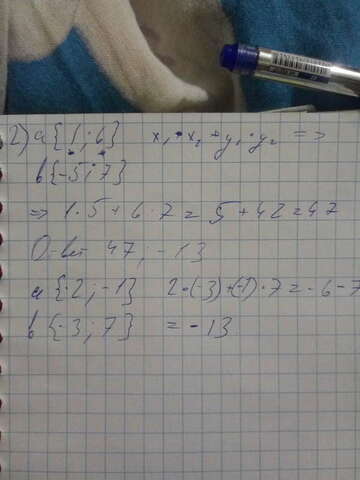 2) a{1;6} x₁ * x₂ + y₁ · y₂ =>
b{-5;7}
=> 1·5 + 6·7 = 5 + 42 = 47
Ответ 47; -13
a{2;-1} 2·(-3)+(-1)·7 = -6-7
b{-3;7} = -13